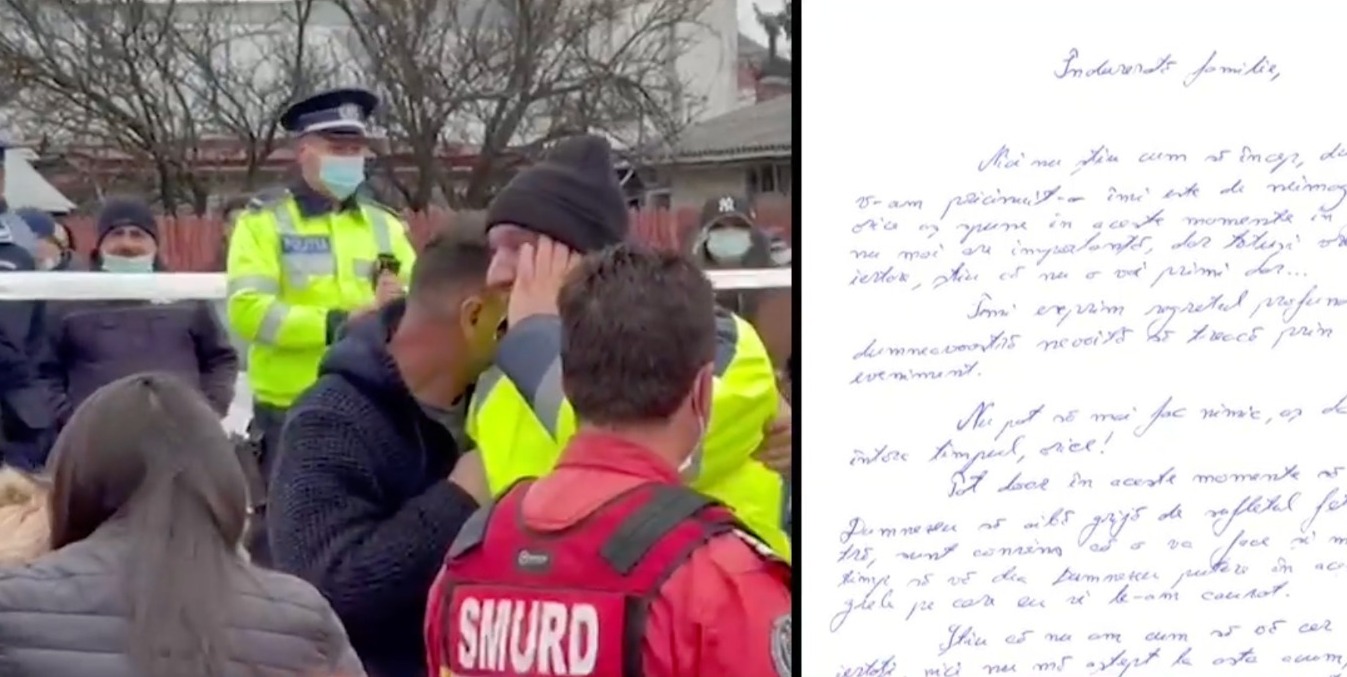 POLIȚIA
NY
SMURD
Îndurerată familie,
Nici nu știu cum să încep,
v-am pricinuit-o îmi este de
orice aș spune în aceste momente
nu mai are importanță, dar totuși
iertare, știu că nu o voi primi dar...
Îmi exprim regretul profund
dumneavoastră nevoită să treacă prin
eveniment.
Nu pot să mai fac nimic, aș
întorc timpul, orice!
Pot doar în aceste momente să
Dumnezeu să aibă grijă de sufletul
tră, sunt convins că o va face și
timp să vă dea Dumnezeu putere în
grele pe care eu vi le-am cauzat.
Știu că nu am cum să vă cer
iertați, nici nu mă aștept la asta acum,